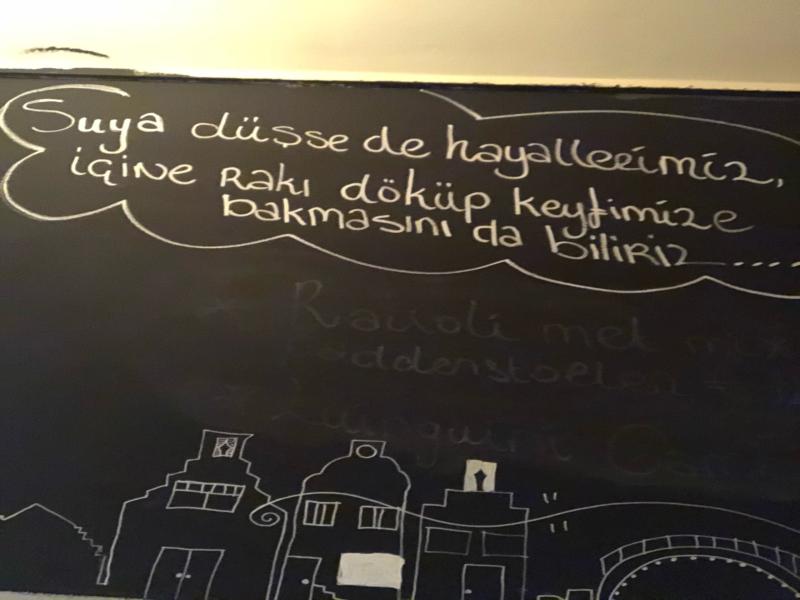 Suya düşse de hayallerimiz,
içine rakı döküp keyfimize
bakmasını da biliriz.....
Ravioli met mix
paddenstoelen